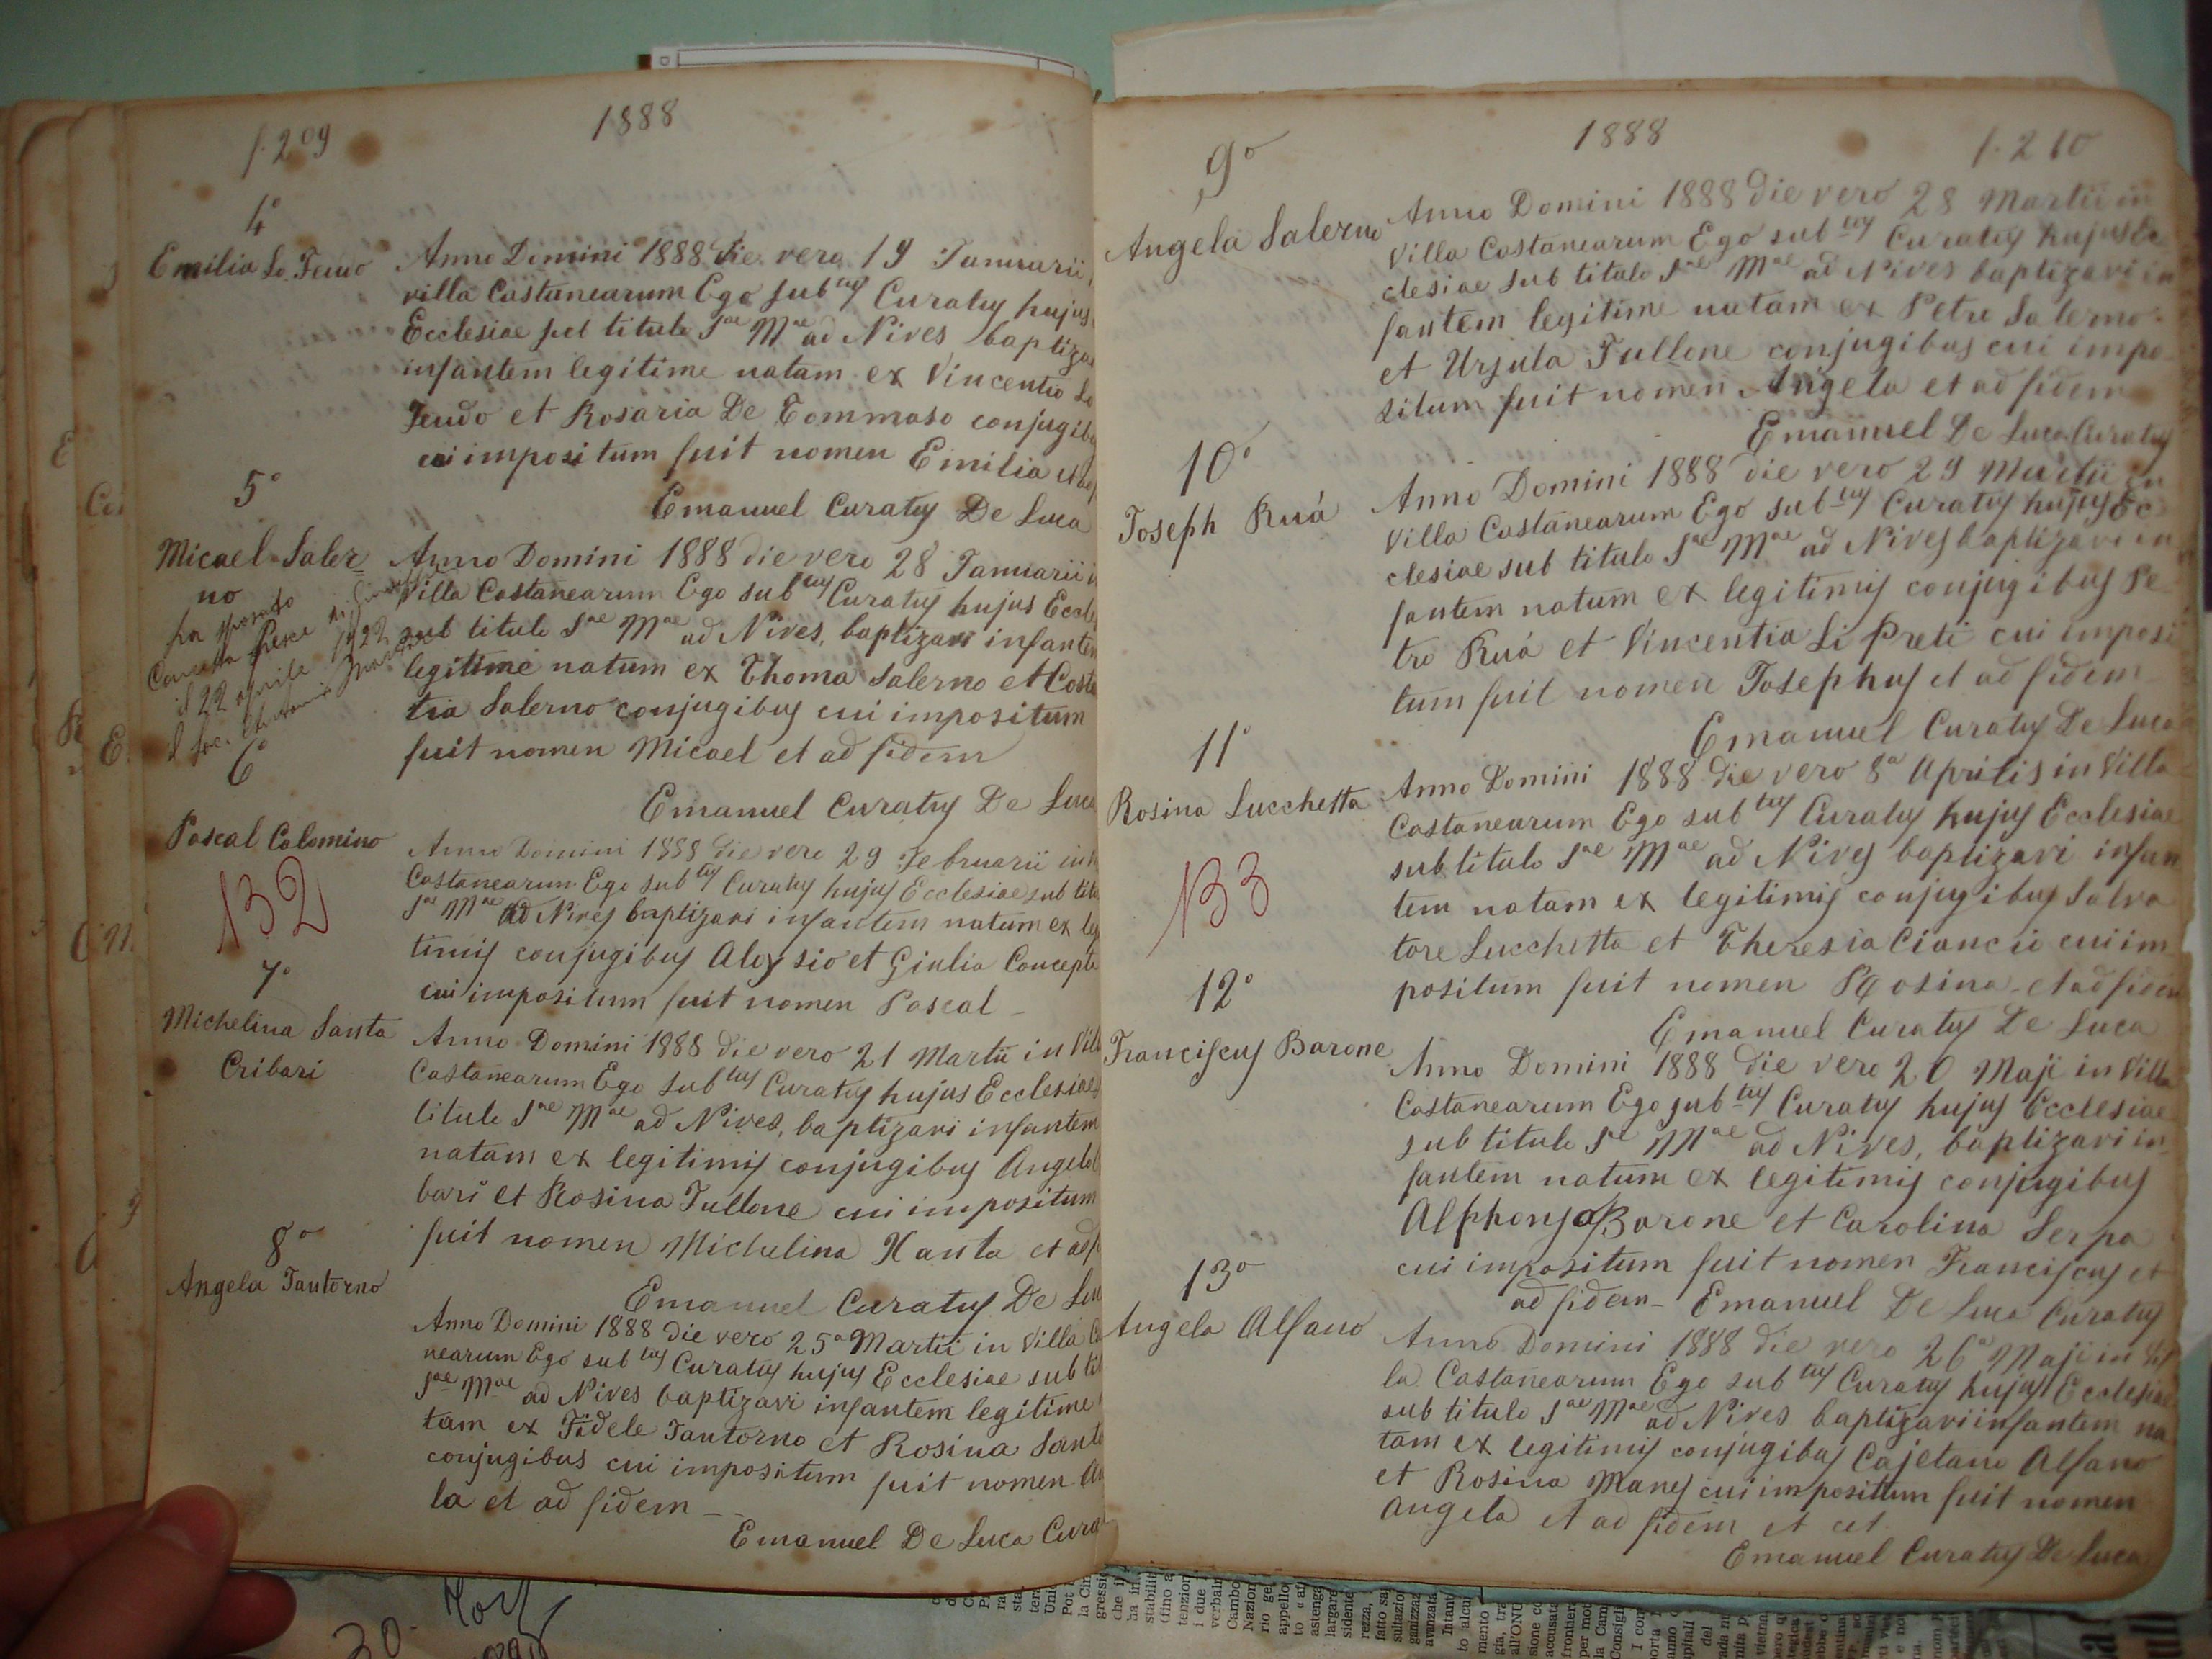 f. 209
1888
4°
Emilia Lo Feudo
Anno Domini 1888 die vero 19 Januarii
villa Castanearum Ego subtus Curatus hujus
Ecclesiae sub titulo Sae Mae ad Nives baptiza
infantem legitime natam ex Vincentio Lo
Feudo et Rosaria De Tommaso conjugib
cui impositum fuit nomen Emilia et ad
Emanuel Curatus De Luca
5°
Micael Saler=
no
ha sposato
il 22 aprile 1922
Anno Domini 1888 die vero 28 Januarii i
Villa Castanearum Ego subtus Curatus hujus Eccle
sub titulo Sae Mae ad Nives, baptizavi infantem
legitime natum ex Thoma Salerno et Costa
tia Salerno conjugibus cui impositum
fuit nomen Micael et ad fidem
Emanuel Curatus De Luca
6°
Pascal Colomino
132
Anno Domini 1888 die vero 29 Februarii in
Castanearum Ego subtus Curatus hujus Ecclesiae sub titu
Sae Mae ad Nives baptizavi infantem natum ex leg
timis conjugibus Aloysio et Giulia Concepta
cui impositum fuit nomen Pascal –
7°
Michelina Santa
Cribari
Anno Domini 1888 die vero 21 Martii in Vill
Castanearum Ego subtus Curatus hujus Ecclesiae
titulo Sae Mae ad Nives, baptizavi infantem
natam ex legitimis conjugibus Angelo
bari et Rosina Tullone cui impositum
fuit nomen Michelina Xanta et ad f
Emanuel Curatus De Luc
8°
Angela Tantorno
Anno Domini 1888 die vero 25a Martii in Villa Ca
nearum Ego subtus Curatus hujus Ecclesiae sub tit
Sae Mae ad Nives baptizavi infantem legitime
tam ex Fidele Tantorno et Rosina Sant
conjugibus cui impositum fuit nomen An
la et ad fidem –
Emanuel De Luca Cura
1888
f. 210
9°
Angela Salerno
Anno Domini 1888 die vero 28 Martii in
Villa Castanearum Ego subtus Curatus hujus Ec
clesiae sub titulo Sae Mae ad Nives baptizavi in
fantem legitime natam ex Petro Salerno
et Ursula Tullone conjugibus cui impo
situm fuit nomen Angela et ad fidem
Emanuel De Luca Curatus
10°
Joseph Ruá
Anno Domini 1888 die vero 29 Martii in
Villa Castanearum Ego subtus Curatus hujus Ec
clesiae sub titulo Sae Mae ad Nives baptizavi in
fantem natum ex legitimis conjugibus Pe
tro Ruá et Vincentia Li Preti cui imposi
tum fuit nomen Josephus et ad fidem –
Emanuel Curatus De Luca
11°
Rosina Lucchetta
133
Anno Domini 1888 die vero 8a Aprilis in Villa
Castanearum Ego subtus Curatus hujus Ecclesiae
sub titulo Sae Mae ad Nives baptizavi infan
tem natam ex legitimis conjugibus Salva
tore Lucchetta et Theresia Ciancio cui im
positum fuit nomen Rosina et ad fidem
Emanuel Curatus De Luca
12°
Franciscus Barone
Anno Domini 1888 die vero 20 Maji in Villa
Castanearum Ego subtus Curatus hujus Ecclesiae
sub titulo Sae Mae ad Nives, baptizavi in
fantem natum ex legitimis conjugibus
Alphonso Barone et Carolina Serpa
cui impositum fuit nomen Franciscus et
ad fidem – Emanuel De Luca Curatus
13°
Angela Alfano
Anno Domini 1888 die vero 26a Maji in Vil
la Castanearum Ego subtus Curatus hujus Ecclesiae
sub titulo Sae Mae ad Nives baptizavi infantem na
tam ex legitimis conjugibus Cajetano Alfano
et Rosina Manes cui impositum fuit nomen
Angela et ad fidem et cet.
Emanuel Curatus De Luca
30.